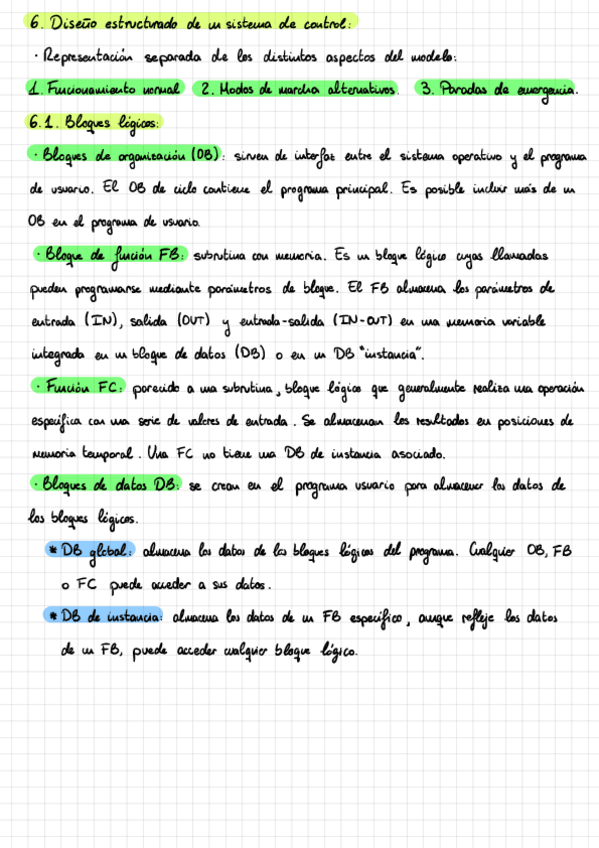 6. Diseño estructurado de un sistema de control:
· Representación separada de los distintos aspectos del modelo:
1. Funcionamiento normal 2. Modos de marcha alternativos. 3. Paradas de emergencia.
6.1. Bloques lógicos:
· Bloques de organización (OB): sirven de interfaz entre el sistema operativo y el programa
de usuario. El OB de ciclo contiene el programa principal. Es posible incluir más de un
OB en el programa de usuario.
· Bloque de función FB: subrutina con memoria. Es un bloque lógico cuyas llamadas
pueden programarse mediante parámetros de bloque. El FB almacena los parámetros de
entrada (IN), salida (OUT) y entrada-salida (IN-OUT) en una memoria variable
integrada en un bloque de datos (DB) o en un DB "instancia".
· Función FC: parecido a una subrutina, bloque lógico que generalmente realiza una operación
específica con una serie de valores de entrada. Se almacenan los resultados en posiciones de
memoria temporal. Una FC no tiene una DB de instancia asociado.
· Bloques de datos DB: se crean en el programa usuario para almacenar los datos de
los bloques lógicos.
* DB global: almacena los datos de los bloques lógicos del programa. Cualquier OB, FB
o FC puede acceder a sus datos.
* DB de instancia: almacena los datos de un FB específico, aunque refleje los datos
de un FB, puede acceder cualquier bloque lógico.